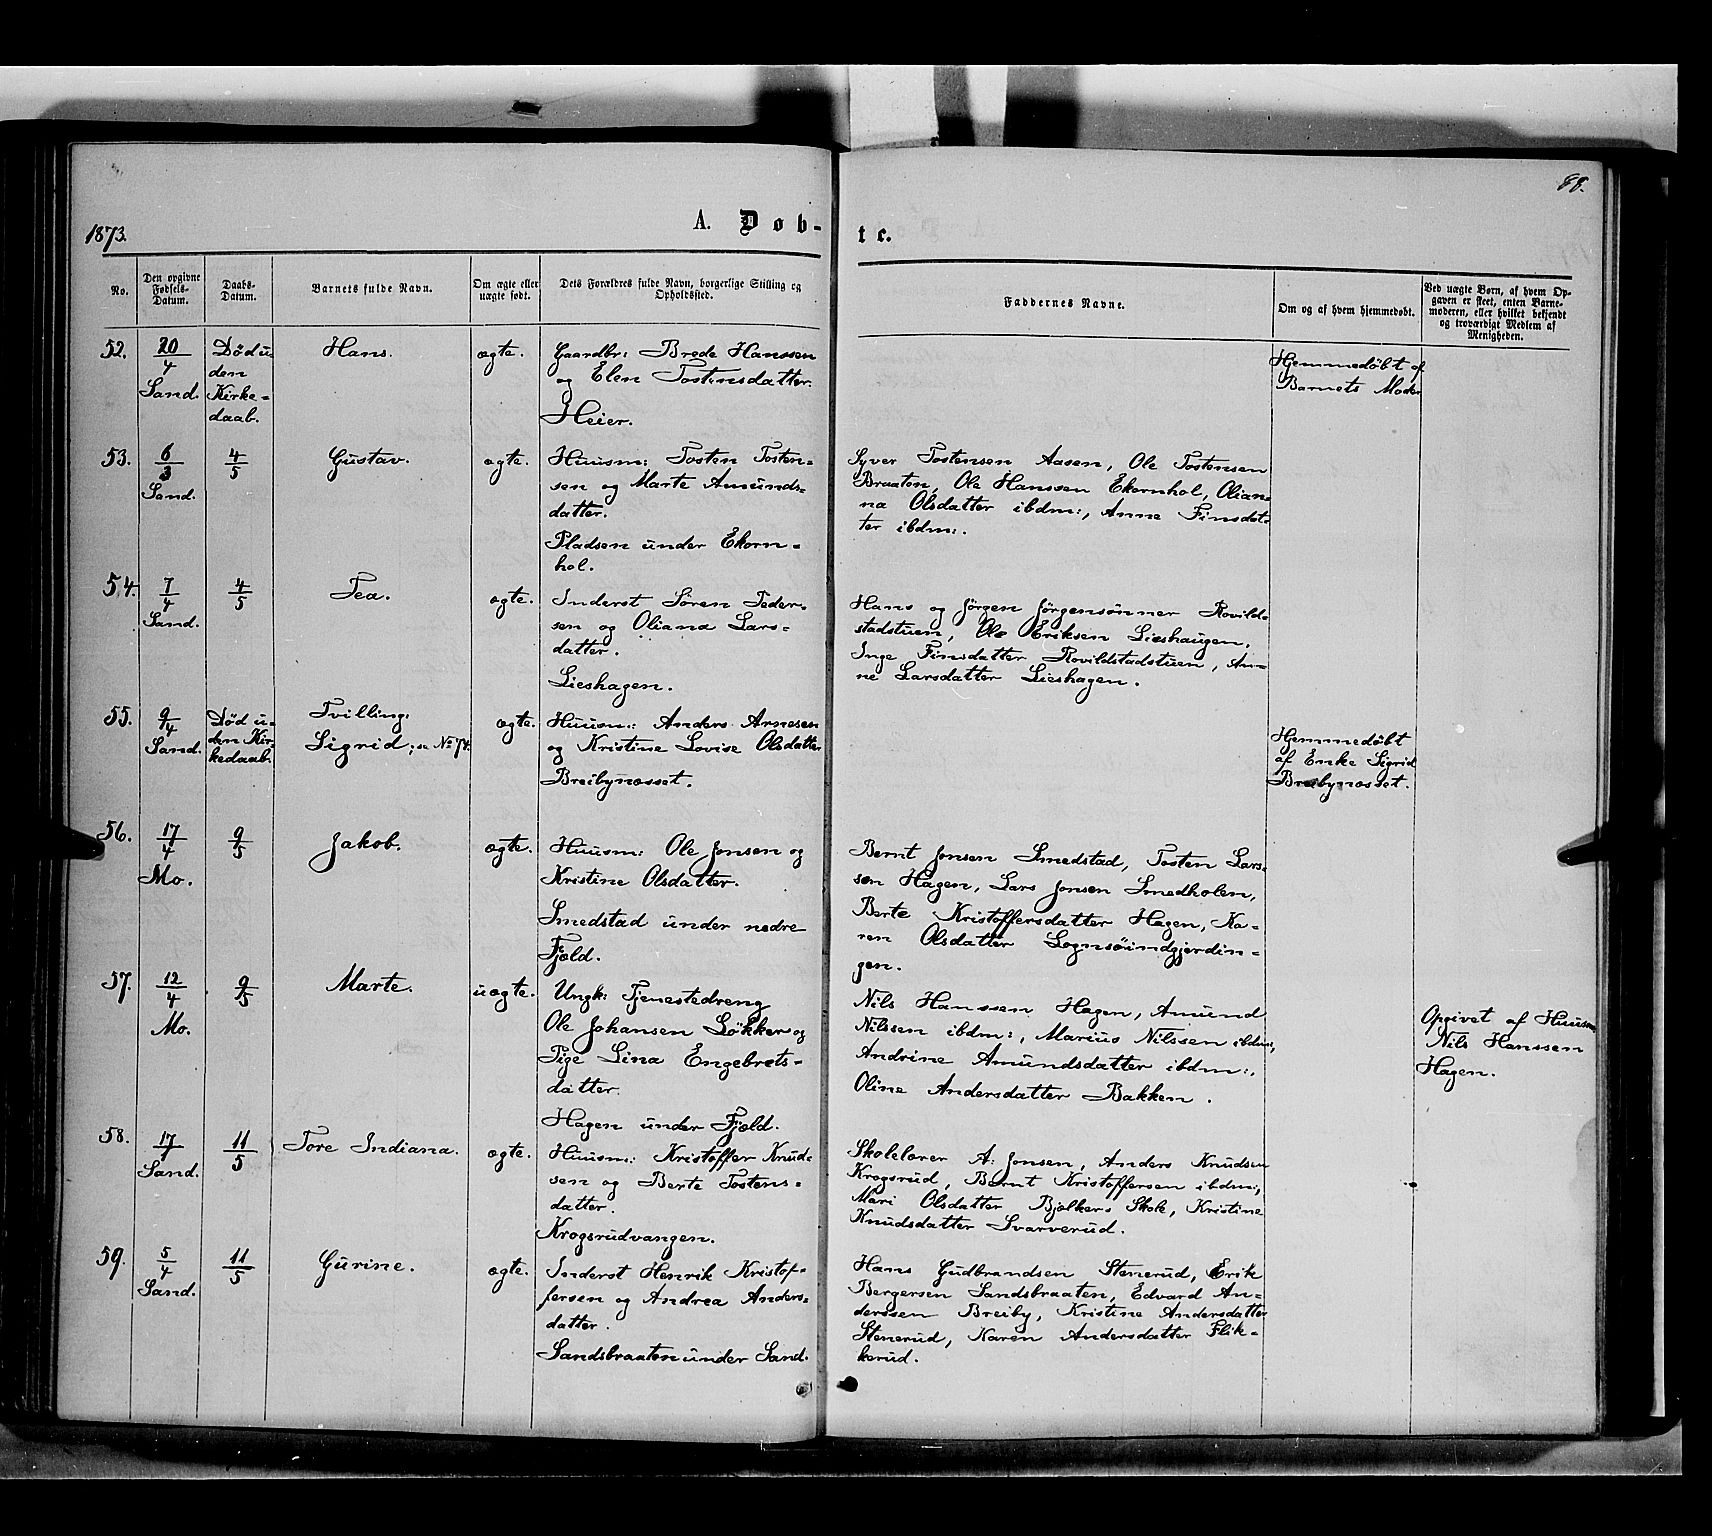 88.
1873.
A. Døb-
te.
No.
Den opgivne
Fødsels-
Datum.
Daabs-
Datum.
Barnets fulde Navn.
Om ægte eller
uægte født.
Dets Forældres fulde Navn, borgerlige Stilling og
Opholdssted.
Faddernes Navne.
Om og af hvem hjemmedøbt.
Ved uægte Børn, af hvem Op-
gaven er skeet, enten Barne-
moderen, eller hvilket bekjendt
og troværdigt Medlem af
Menigheden.
52.
20/4
Sand.
Død u-
den
Kirke-
daab.
Hans.
ægte.
Gaardbr: Brede Hanssen
og Elen Tostensdatter.
Heier.
Hjemmedøbt af
Barnets Moder
53.
6/3
Sand.
4/5
Gustav.
ægte.
Huusm: Tosten Tosten-
sen og Marte Amunds-
datter.
Pladsen under Ekorn-
hol.
Syver Tostensen Aasen, Ole Tostensen
Braaten, Ole Hanssen Ekornhol, Olian-
na Olsdatter ibdm:, Anne Finsdat-
ter ibdm:.
54.
7/4
Sand.
4/5
Tea.
ægte.
Inderst Søren Peder-
sen og Oliana Lars-
datter.
Lieshagen.
Hans og Jörgen Jörgensönner Rovild-
stadstuen, Ole Eriksen Lieshaugen,
Inge Finsdatter Rovildstadstuen, An-
ne Larsdatter Lieshagen.
55.
9/4
Sand.
Død u-
den Kir-
kedaab.
Tvilling:
Sigrid; se No 74.
ægte.
Huusm: Anders Arnesen
og Kristine Lovise Olsdatter
Breibynæsset.
Hjemmedøbt
af Enke Sigrid
Breibynæsset.
56.
17/4
Mo.
9/5
Jakob.
ægte.
Huusm: Ole Jonsen og
Kristine Olsdatter.
Smedstad under nedre
Fjeld.
Bernt Jonsen Smedstad, Tosten Lars-
sen Hagen, Lars Jonsen Smedholen,
Berte Kristoffersdatter Hagen, Ka-
ren Olsdatter Sognsöimdgjerdin-
gen.
57.
12/4
Mo.
9/5
Marte.
uægte.
Ungk: Tjenestedreng
Ole Johansen Løkker og
Pige Lina Engebrets-
datter.
Hagen under Fjæld.
Nils Hanssen Hagen, Amund
Nilssen ibdm:, Marius Nilssen ibdm:,
Andrine Amundsdatter ibdm:,
Oline Andersdatter Bakken.
Opgivet af Huusm:
Nils Hanssen
Hagen.
58.
17/1
Sand.
11/5
Tore Indiana.
ægte.
Huusm: Kristoffer Knud-
sen og Berte Tostens-
datter.
Krogsrudvangen.
Skolelærer A: Jonsen, Anders Knudsen
Krogsrud, Bernt Kristoffersen ibdm:,
Mari Olsdatter Bjælkers Skole, Kristine
Knudsdatter Svarverud.
59.
5/4
Sand.
11/5
Gurine.
ægte.
Inderst Henrik Kristof-
fersen og Andrea Anders-
datter.
Sandsbraaten under Sand.
Hans Gudbrandsen Stenerud, Erik
Bergersen Sandsbraaten, Edvard An-
derssen Breiby, Kristine Andersdatter
Stenerud, Karen Andersdatter Flik-
kerud.